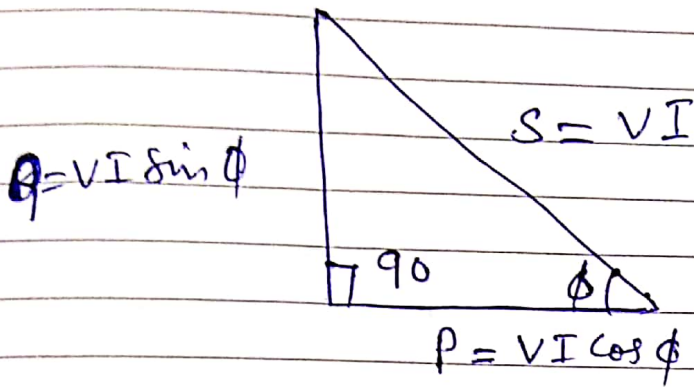 S = VI
Q = VI sin φ
90
φ
P = VI cos φ